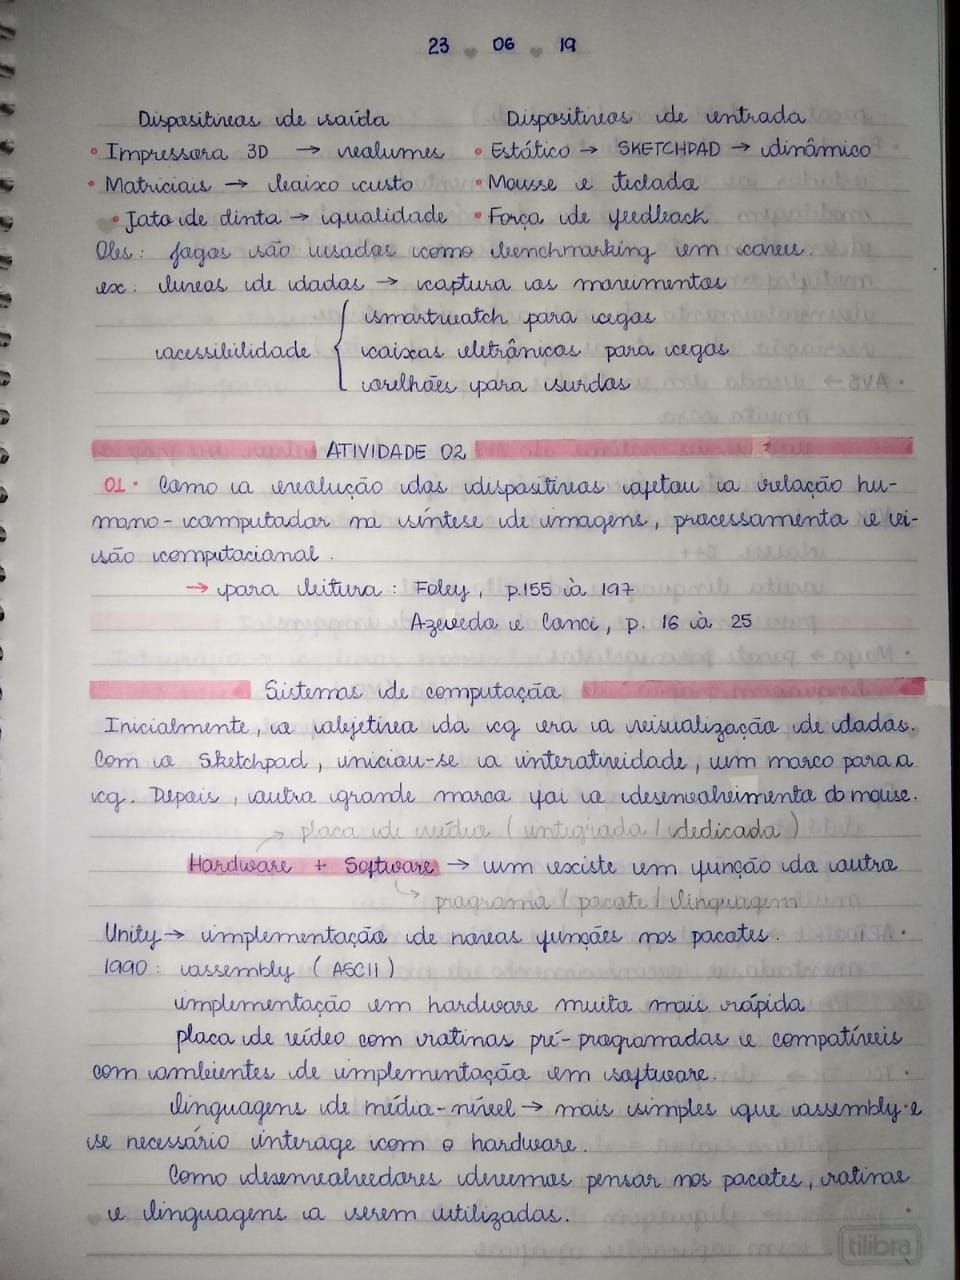 23 06 19
Dispositivos de saída
Dispositivos de entrada
• Impressora 3D → volumes
• Estático → SKETCHPAD → dinâmico
• Matriciais → baixo custo
• Mousse e teclado
• Jato de tinta → qualidade
• Força de feedback
Obs: jogos são usados como benchmarking em cores.
ex: luvas de dados → captura os movimentos
acessibilidade { smartwatch para cegos
caixas eletrônicos para cegos
orelhões para surdos
ATIVIDADE 02
01. Como a evolução dos dispositivos afetou a relação hu-
mano-computador na síntese de imagens, processamento e vi-
são computacional.
→ para leitura: Foley, p.155 à 197
Azevedo e Conci, p. 16 à 25
Sistemas de computação
Inicialmente, o objetivo da cg era a visualização de dados.
Com o Sketchpad, iniciou-se a interatividade, um marco para a
cg. Depois, outro grande marco foi o desenvolvimento do mouse.
→ placa de vídeo (integrada / dedicada)
Hardware + Software → um existe em função do outro
↳ programa / pacote / linguagem
Unity → implementação de novas funções nos pacotes.
1990: assembly (ASCII)
implementação em hardware muito mais rápida
placa de vídeo com rotinas pré-programadas e compatíveis
com ambientes de implementação em software.
linguagens de médio-nível → mais simples que assembly e
se necessário interage com o hardware.
Como desenvolvedores devemos pensar nos pacotes, rotinas
e linguagens a serem utilizadas.
tilibra